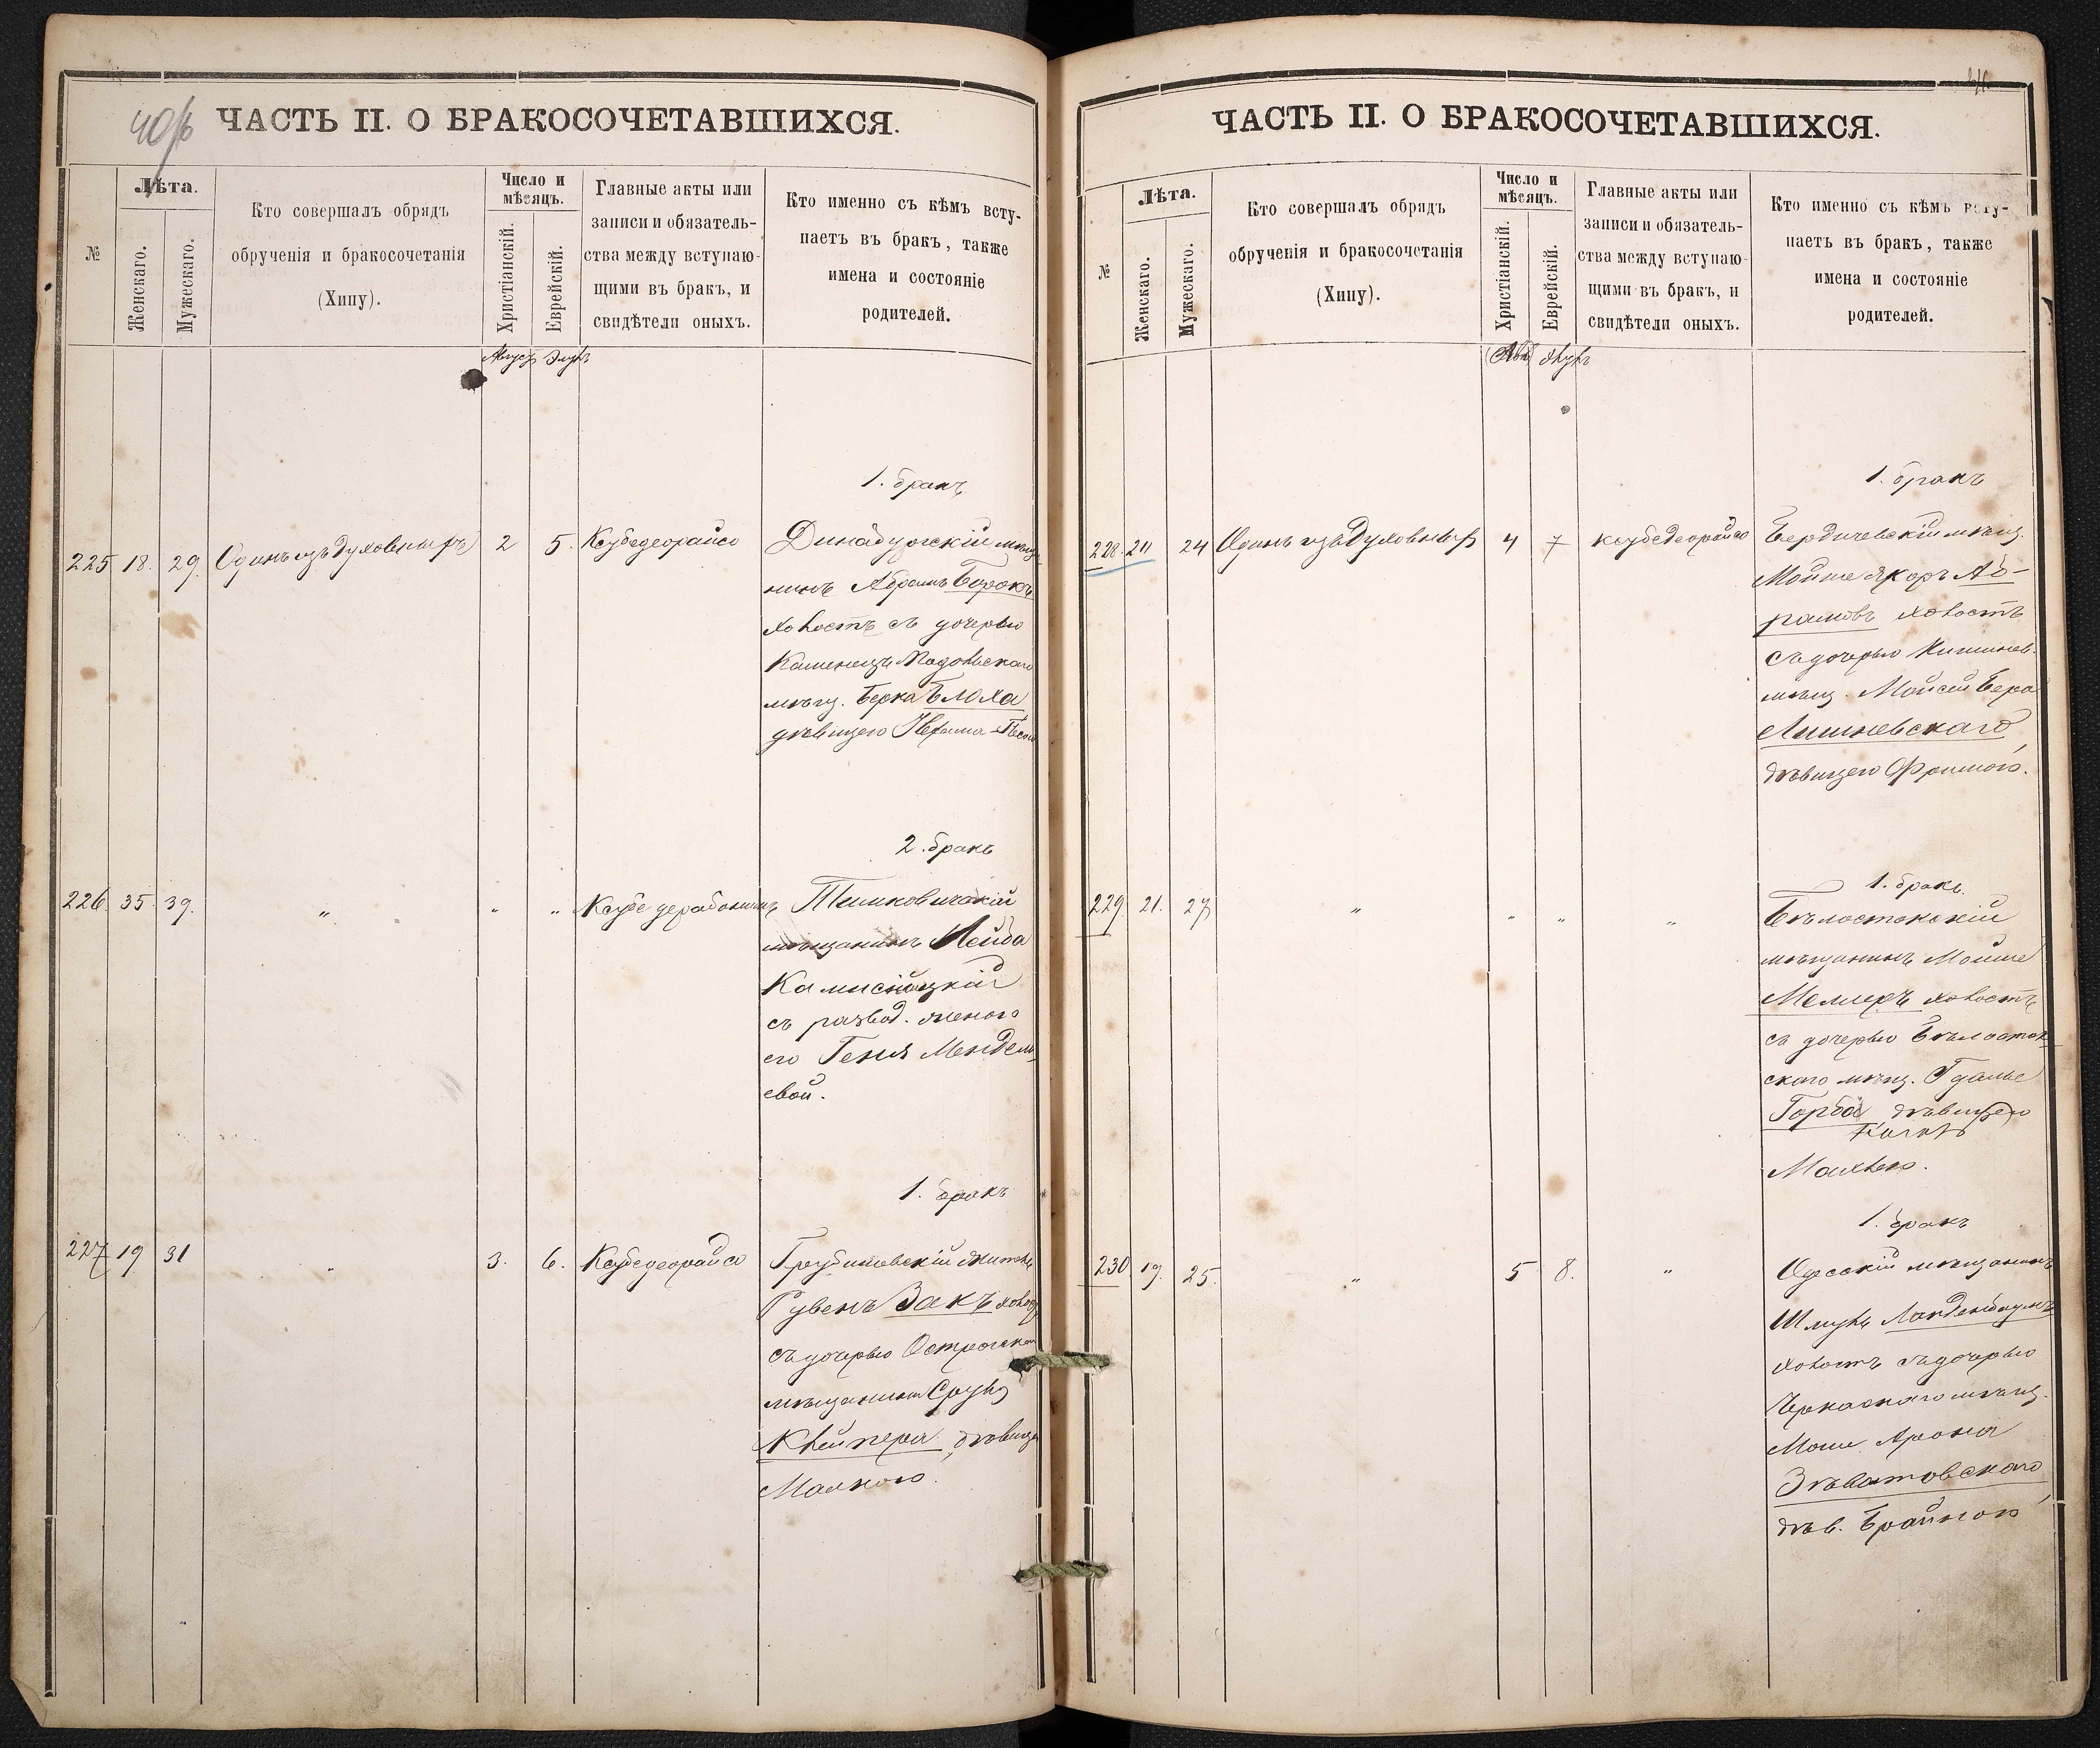 40/б
ЧАСТЬ II. О БРАКОСОЧЕТАВШИХСЯ.
№
Лѣта.
Женскаго.
Мужескаго.
Кто совершалъ обрядъ
обрученія и бракосочетанія
(Хипу).
Число и
мѣсяцъ.
Христіанскій.
Еврейскій.
Главные акты или
записи и обязатель-
ства между вступаю-
щими въ бракъ, и
свидѣтели оныхъ.
Кто именно съ кѣмъ всту-
паетъ въ бракъ, также
имена и состояніе
родителей.
Август Элулъ
1. бракъ
225 18. 29. Одинъ изъ Духовныхъ 2 5. Ксубедеорайсо Динабургскій мѣща-
нинъ Абрамъ Борокъ
холостъ съ дочерью
Каменецъ Подольскаго
мѣщ. Берка Блоха
дѣвицею
2. бракъ
226. 35. 39. " " " Ксубе дерабонинъ Тимковичскій
мѣщанинъ Лейба
съ развод. женою
его Геня Мендел-
евой.
1. бракъ
227 19 31 " 3. 6. Ксубедеорайсо
Рувенъ Закъ холост
съ дочерью Острогскаго
мѣщанина Сруль
Клейнера дѣвице
Малкою.
ЧАСТЬ II. О БРАКОСОЧЕТАВШИХСЯ.
№
Лѣта.
Женскаго.
Мужескаго.
Кто совершалъ обрядъ
обрученія и бракосочетанія
(Хипу).
Число и
мѣсяцъ.
Христіанскій.
Еврейскій.
Главные акты или
записи и обязатель-
ства между вступаю-
щими въ бракъ, и
свидѣтели оныхъ.
Кто именно съ кѣмъ всту-
паетъ въ бракъ, также
имена и состояніе
родителей.
Элулъ
1. бракъ
228. 24 Одинъ изъ Духовныхъ 4 7 ксубедеорайсо Бердичевскій мѣщ.
Мойше Аб-
рамовъ холостъ
съ дочерью Кишинев.
мѣщ. Мойсей Бера
Лишневскаго
дѣвицею Фримою.
1. бракъ.
229 21. 27 " " " " Бѣлостокскій
мѣщанинъ Мойше
Меллеръ холостъ
съ дочерью Бѣлосток-
скаго мѣщ. Гдалье
Горба дѣвицею
Малкою.
1. бракъ
230 19. 25. " 5 8. " Одесскій мѣщанинъ
Шмуль Ланденбаумъ
холостъ съ дочерью
Черкаскаго мѣщ.
Моше Арона
дѣв. Брайною